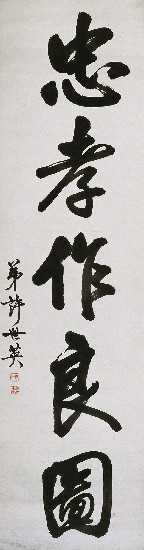 忠孝作良圖
弟許世英